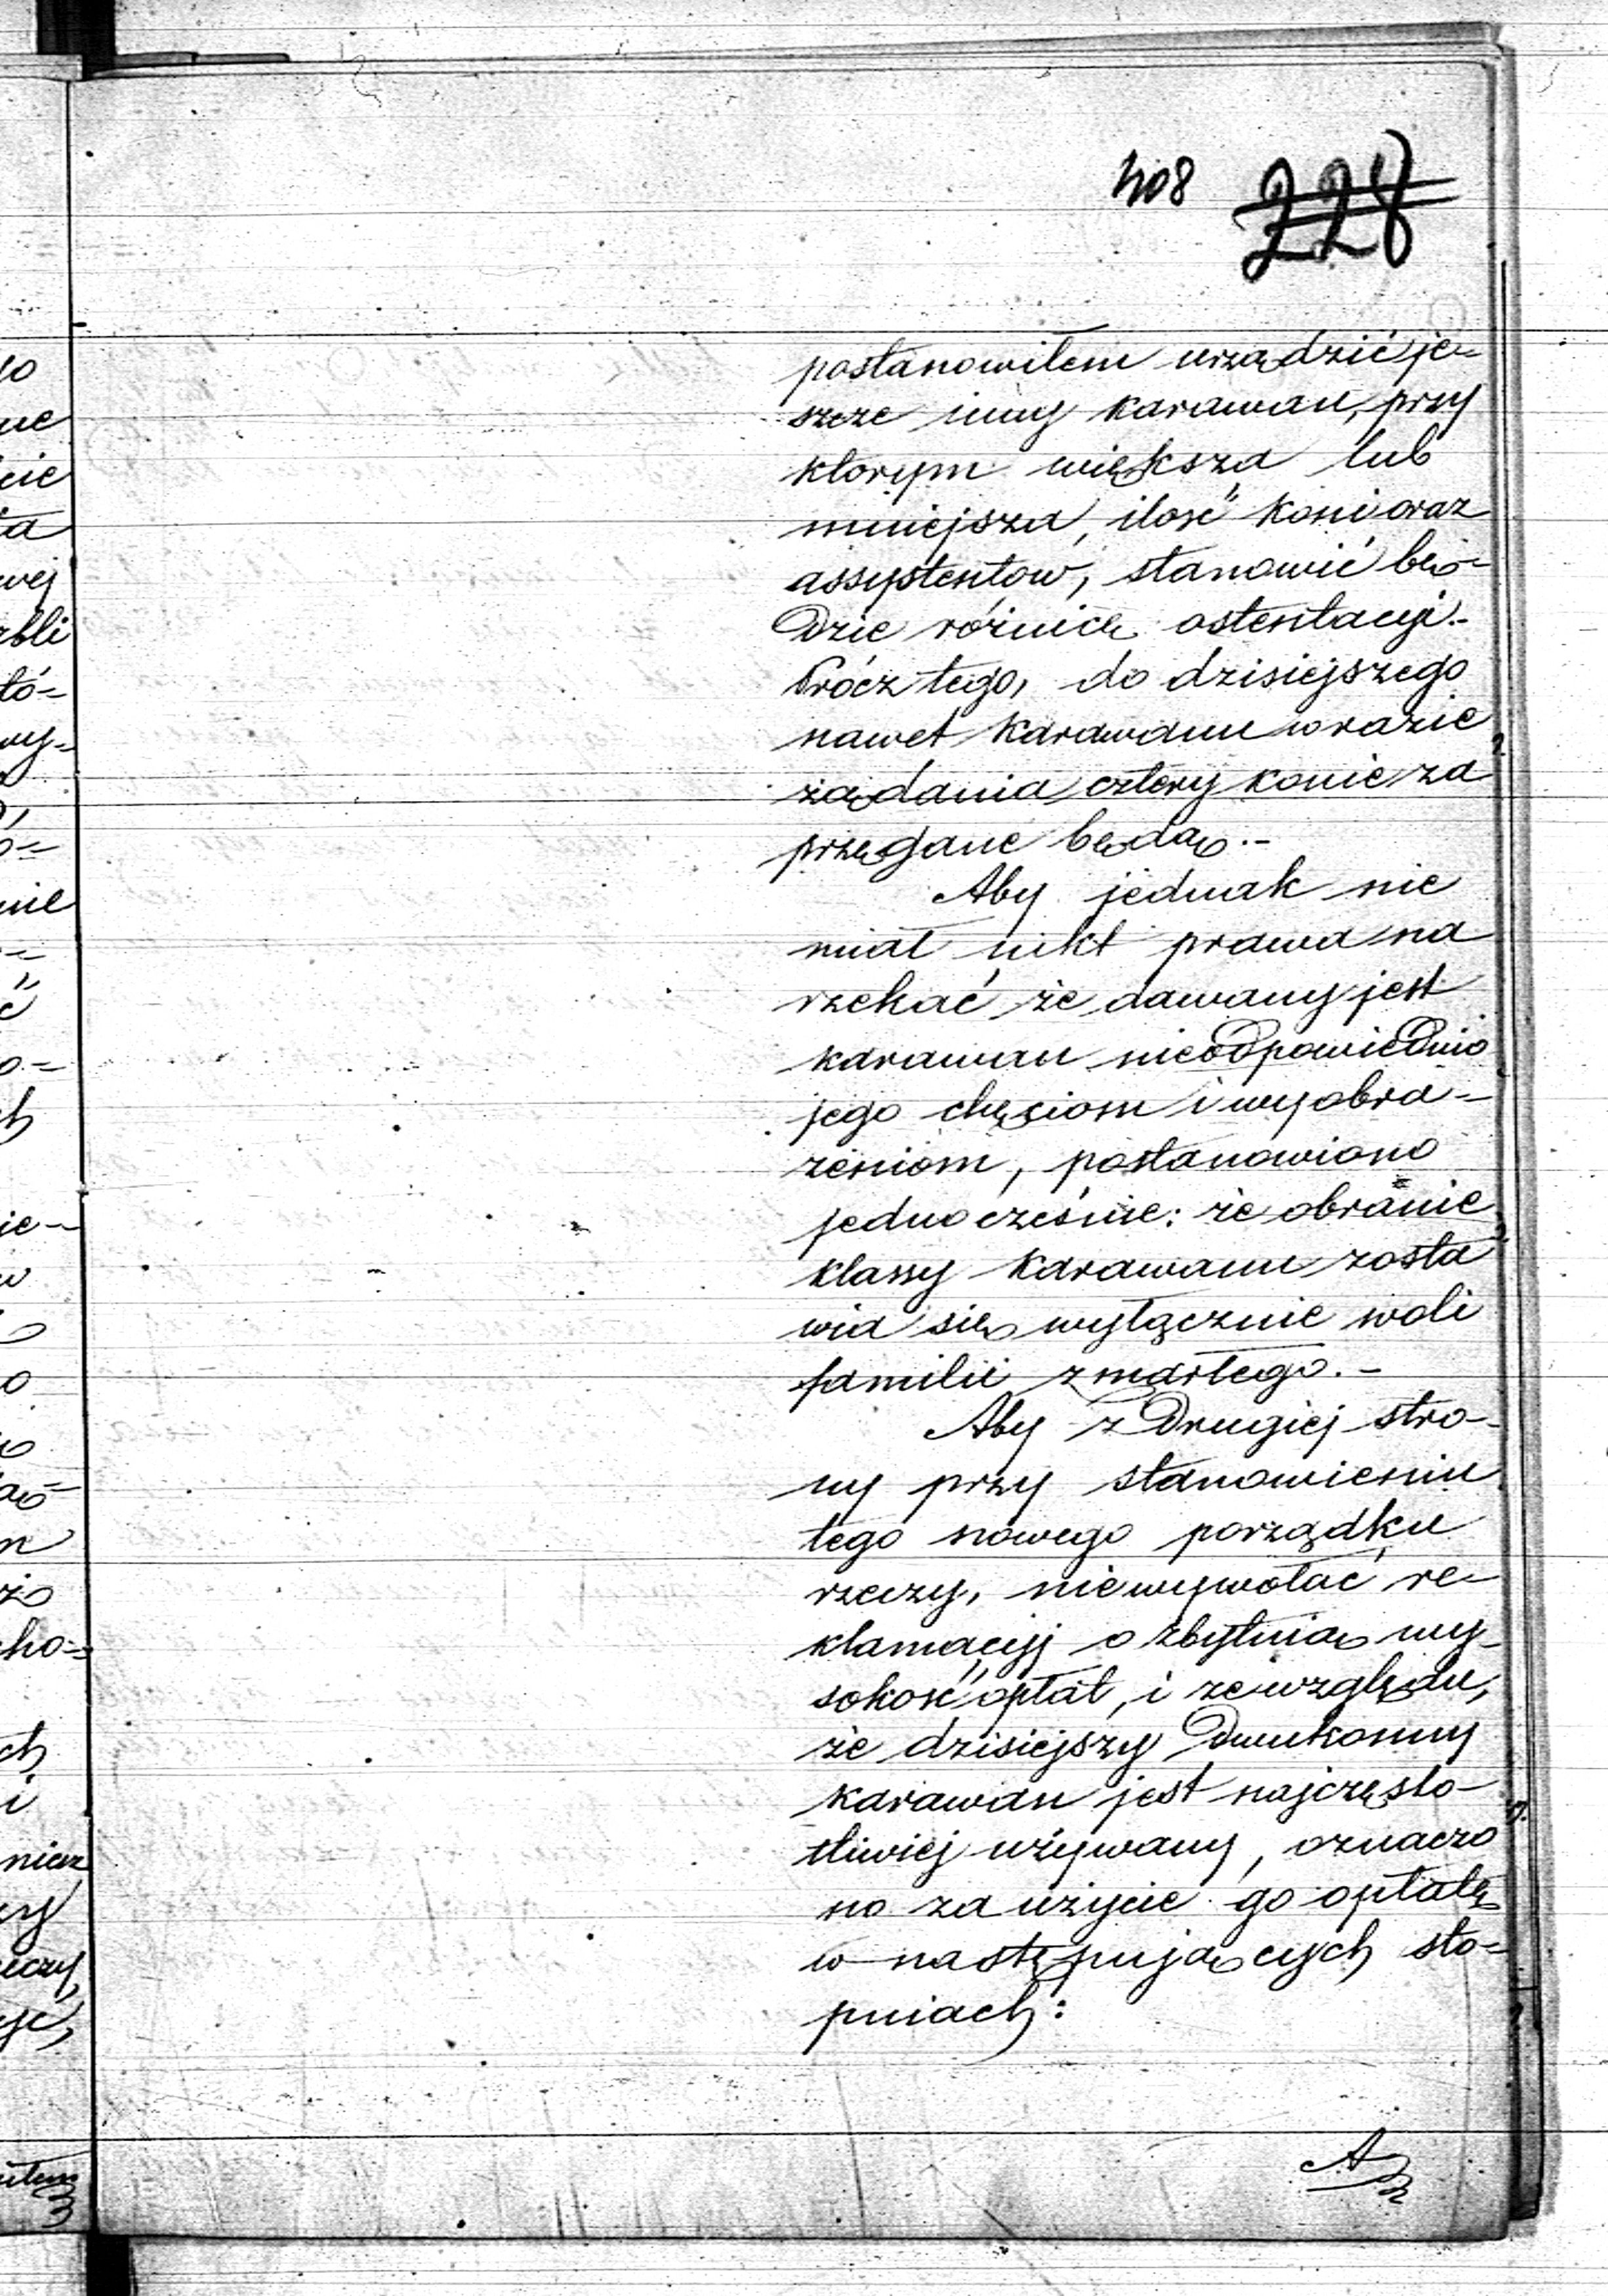 408 228
postanowiłem urządzić je-
szcze inny karawan, przy
ktorym większa lub
mniejsza, ilość koni oraz
assystentow, stanowić bę-
dzie różnicę ostentacyi.-
Prócz tego, do dzisiejszego
nawet karawanu w razie
żądania cztery konie za
przęgane będą.-
Aby jednak nie
miał nikt prawa na
rzekać że dawany jest
karawan nieodpowiednio
jego chęciom i wyobra-
żeniom, postanowiono
jednocześnie: że obranie
klassy karawanu zosta
wia się wyłącznie woli
familii zmarłego.-
Aby z drugiej stro-
ny przy stanowieniu
tego nowego porządku
rzeczy, niewywołać re-
klamacyj o zbytnią wy-
sokość opłat, i ze względu,
że dzisiejszy dwukonny
karawan jest najczęsto-
tliwiej używany, oznaczo
no za użycie go opłatę
w następujących sto-
pniach:
A